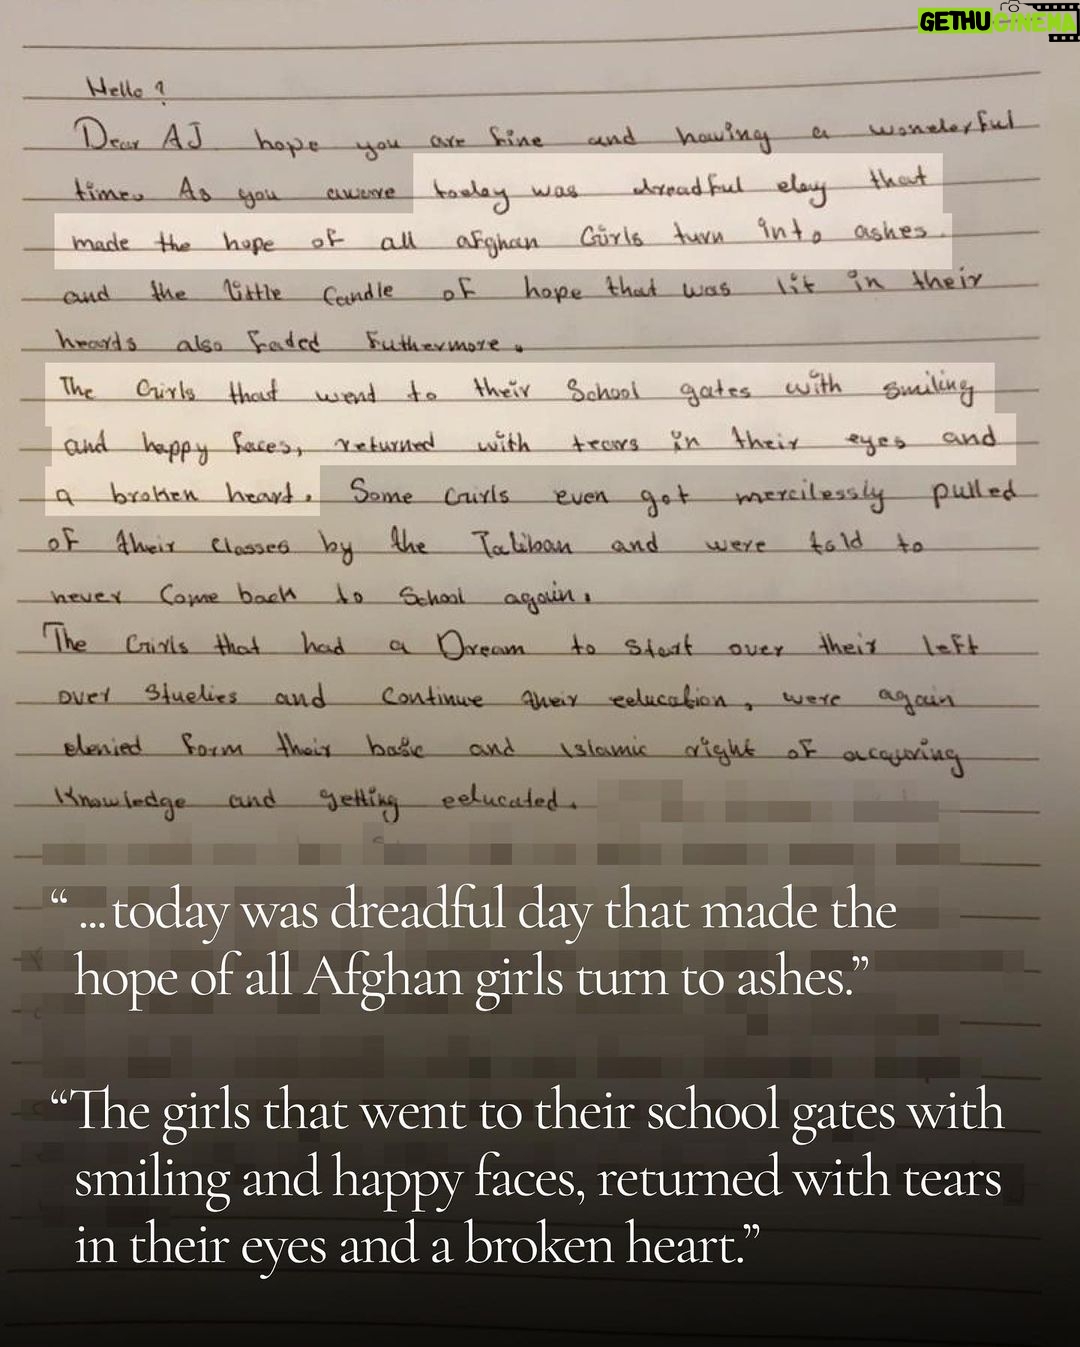 GETHUCINEMA
Hello ?
Dear AJ hope you are fine and having a wonderful
time. As you aware today was dreadful day that
made the hope of all afghan Girls turn into ashes.
and the little Candle of hope that was lit in their
hearts also faded Futhermore.
The Girls that went to their School gates with smiling
and happy faces, returned with tears in their eyes and
a broken heart. Some Girls even got mercilessly pulled
of their classes by the Taliban and were told to
never Come back to School again.
The Girls that had a Dream to start over their left
over studies and Continue their education, were again
denied form their basic and Islamic right of acquring
Knowledge and getting educated.
“ ...today was dreadful day that made the
hope of all Afghan girls turn to ashes.”
“The girls that went to their school gates with
smiling and happy faces, returned with tears
in their eyes and a broken heart.”